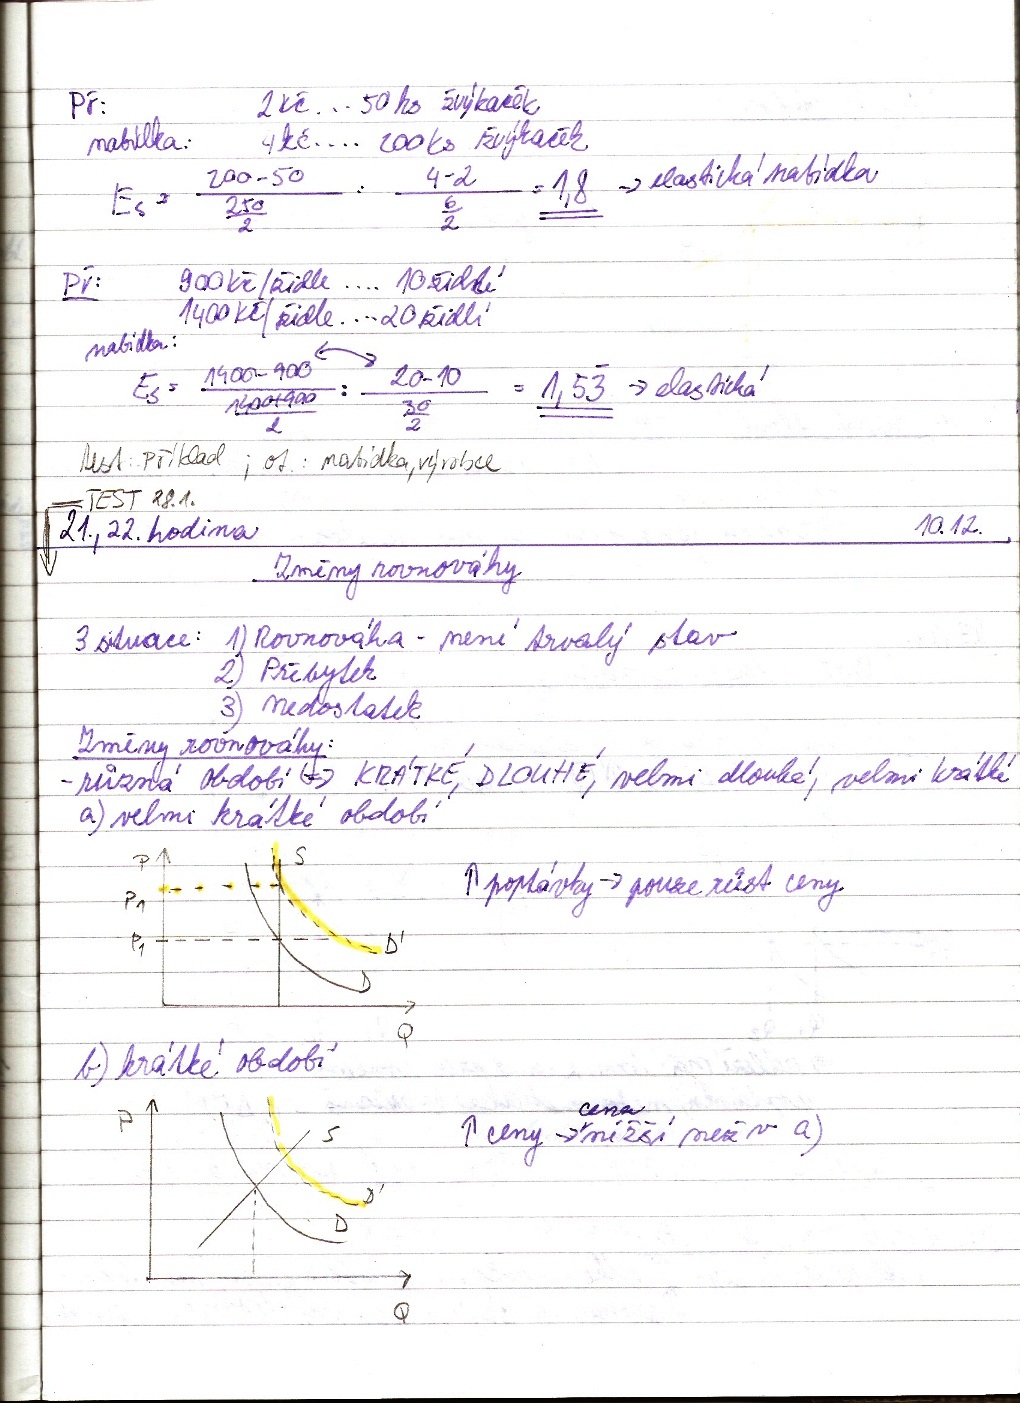 Př: 2 Kč ... 50 ks žvýkaček
nabídka: 4 Kč .... 200 ks žvýkaček
Es = (200-50)/(250/2) : (4-2)/(6/2) = 1,8 → elastická nabídka
Př: 900 Kč/židle .... 10 židlí
1400 Kč/židle .... 20 židlí
nabídka:
Es = (1400-900)/((1400+900)/2) : (20-10)/(30/2) = 1,53 → elastická
test: příklad ; ot.: nabídka, výrobce
TEST 28.1.
21., 22. hodina 10.12.
Změny rovnováhy
3 situace: 1) Rovnováha - není trvalý stav
2) Přebytek
3) Nedostatek
Změny rovnováhy:
- různá období => KRÁTKÉ, DLOUHÉ, velmi dlouhá, velmi krátké
a) velmi krátké období
P S
P1
↑ poptávky → pouze růst ceny
P1 D'
D
Q
b) krátké období
P S
cena
↑ ceny → nižší než v a)
D'
D
Q